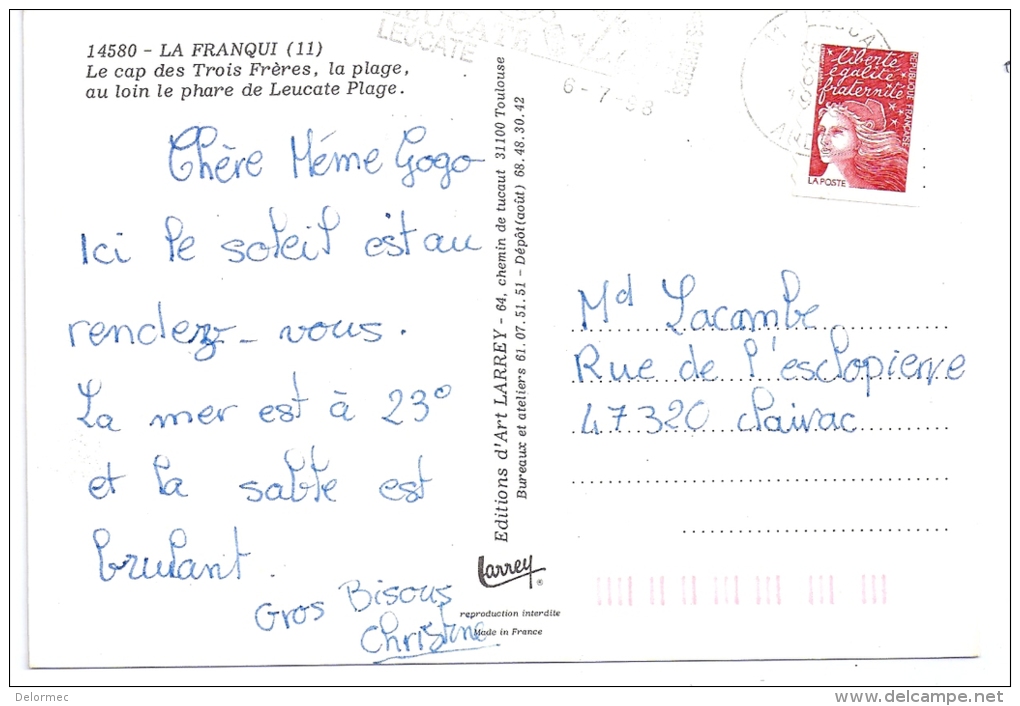 14580 - LA FRANQUI (11)
Le cap des Trois Frères, la plage,
au loin le phare de Leucate Plage.
Chère Méme Gogo
Ici le soleil est au
rendez-vous.
La mer est à 23°
et la sable est
brulant.
Gros Bisous
Christine
Editions d'Art LARREY - 64, chemin de tucaut 31100 Toulouse
Bureaux et ateliers 61.07.51.51 - Dépôt(août) 68.48.30.42
Larrey
®
reproduction interdite
Made in France
LEUCATE
LEUCATE
6-7-98
liberté
égalité
fraternité
REPUBLIQUE FRANÇAISE
LA POSTE
Md Lacombe
Rue de l'esclopierre
47320 Clairac
Delormec
www.delcampe.net